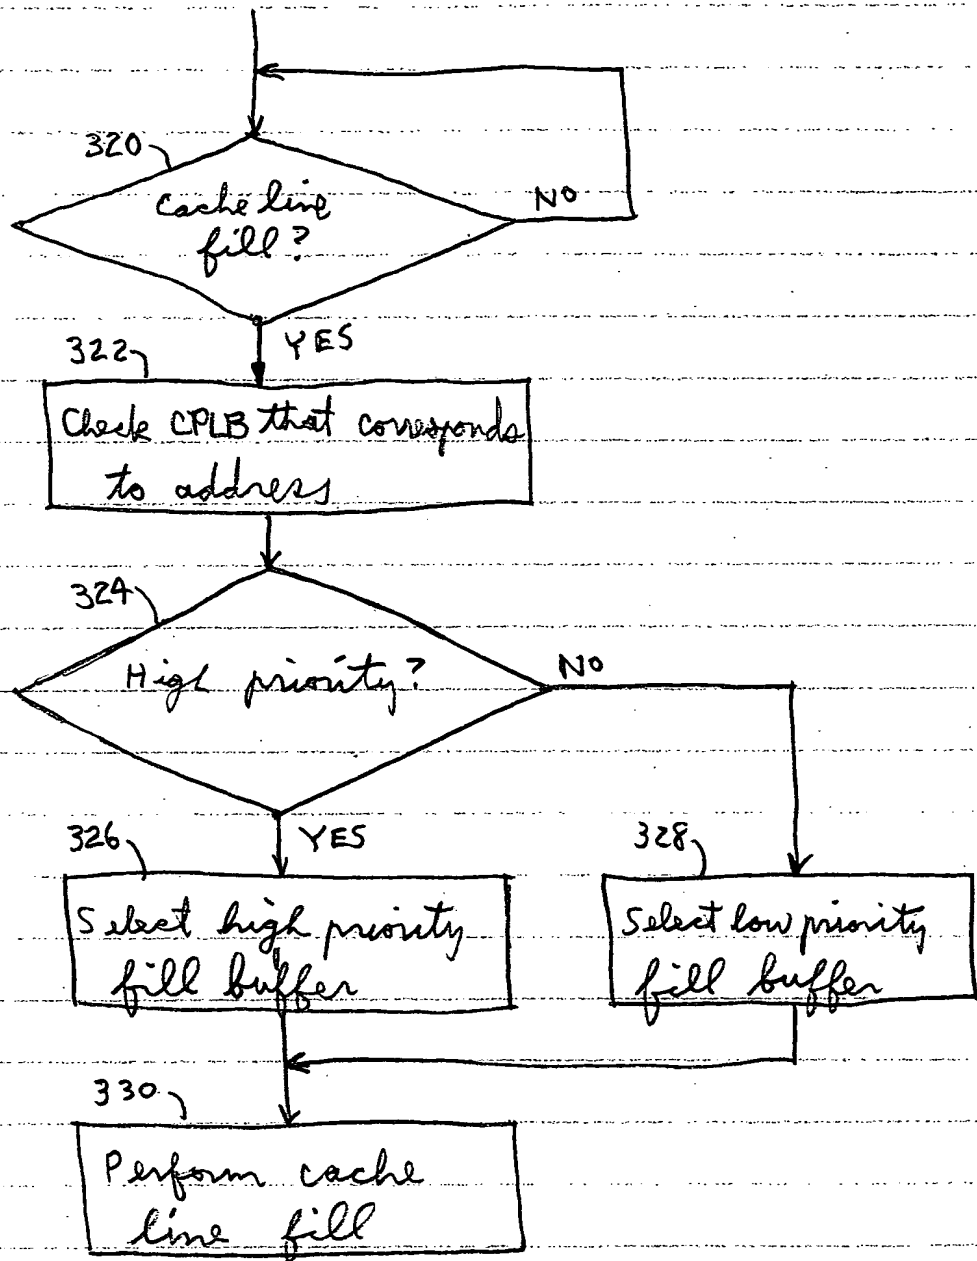 320
Cache line
fill?
NO
YES
322
Check CPLB that corresponds
to address
324
High priority?
NO
YES
326
Select high priority
fill buffer
328
Select low priority
fill buffer
330
Perform cache
line fill